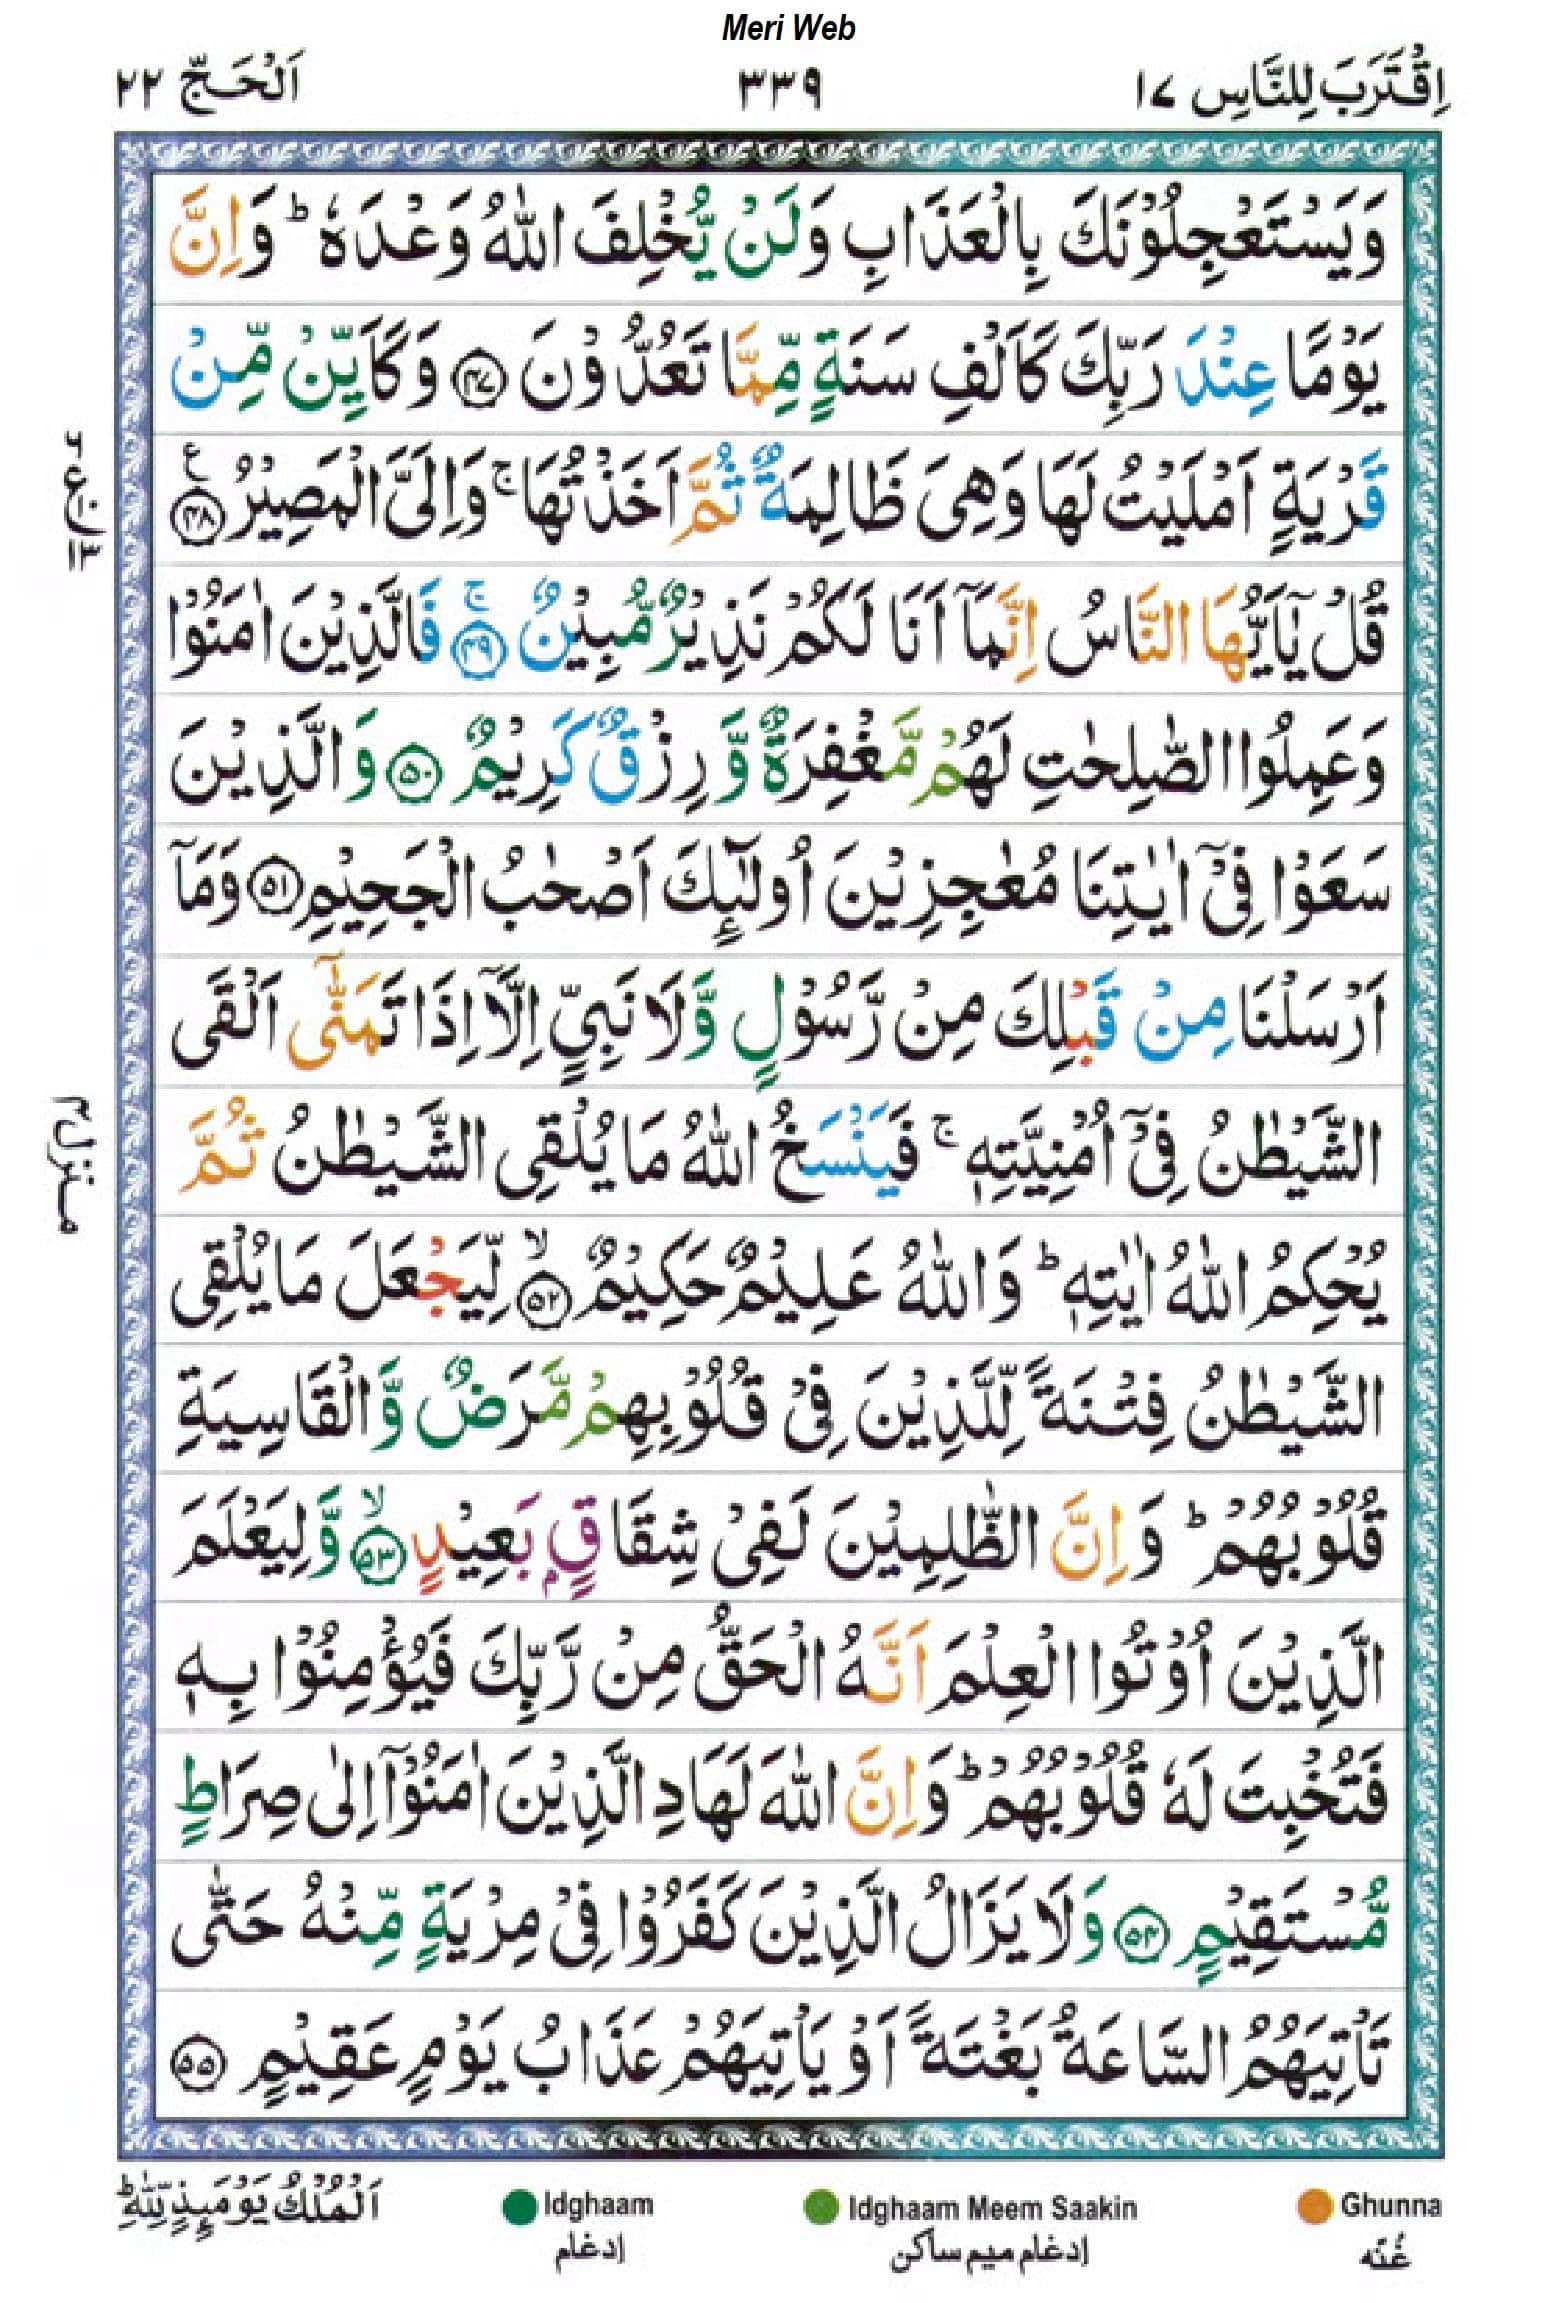 Meri Web
اِقْتَرَبَ لِلنَّاسِ ١٧
٣٣٩
اَلْحَجّ ٢٢
وَيَسْتَعْجِلُوْنَكَ بِالْعَذَابِ وَلَنْ يُّخْلِفَ اللّٰهُ وَعْدَهٗ ؕ وَاِنَّ
يَوْمًا عِنْدَ رَبِّكَ كَاَلْفِ سَنَةٍ مِّمَّا تَعُدُّوْنَ ﴿۴۷﴾ وَكَاَيِّنْ مِّنْ
قَرْيَةٍ اَمْلَيْتُ لَهَا وَهِىَ ظَالِمَةٌ ثُمَّ اَخَذْتُهَا ۚ وَاِلَىَّ الْمَصِيْرُ ﴿۴۸﴾ ع
قُلْ يٰۤاَيُّهَا النَّاسُ اِنَّمَاۤ اَنَا لَكُمْ نَذِيْرٌ مُّبِيْنٌ ﴿۴۹﴾ ۚ فَالَّذِيْنَ اٰمَنُوْا
وَعَمِلُوا الصّٰلِحٰتِ لَهُمْ مَّغْفِرَةٌ وَّرِزْقٌ كَرِيْمٌ ﴿۵۰﴾ وَالَّذِيْنَ
سَعَوْا فِىْۤ اٰيٰتِنَا مُعٰجِزِيْنَ اُولٰٓئِكَ اَصْحٰبُ الْجَحِيْمِ ﴿۵۱﴾ وَمَاۤ
اَرْسَلْنَا مِنْ قَبْلِكَ مِنْ رَّسُوْلٍ وَّلَا نَبِىٍّ اِلَّاۤ اِذَا تَمَنّٰٓى اَلْقَى
الشَّيْطٰنُ فِىْۤ اُمْنِيَّتِهٖ ۚ فَيَنْسَخُ اللّٰهُ مَا يُلْقِى الشَّيْطٰنُ ثُمَّ
يُحْكِمُ اللّٰهُ اٰيٰتِهٖ ؕ وَاللّٰهُ عَلِيْمٌ حَكِيْمٌ ﴿۵۲﴾ ۙ لِّيَجْعَلَ مَا يُلْقِى
الشَّيْطٰنُ فِتْنَةً لِّلَّذِيْنَ فِىْ قُلُوْبِهِمْ مَّرَضٌ وَّالْقَاسِيَةِ
قُلُوْبُهُمْ ؕ وَاِنَّ الظّٰلِمِيْنَ لَفِىْ شِقَاقٍۭ بَعِيْدٍ ﴿۵۳﴾ ۙ وَّلِيَعْلَمَ
الَّذِيْنَ اُوْتُوا الْعِلْمَ اَنَّهُ الْحَقُّ مِنْ رَّبِّكَ فَيُؤْمِنُوْا بِهٖ
فَتُخْبِتَ لَهٗ قُلُوْبُهُمْ ؕ وَاِنَّ اللّٰهَ لَهَادِ الَّذِيْنَ اٰمَنُوْۤا اِلٰى صِرَاطٍ
مُّسْتَقِيْمٍ ﴿۵۴﴾ وَلَا يَزَالُ الَّذِيْنَ كَفَرُوْا فِىْ مِرْيَةٍ مِّنْهُ حَتّٰى
تَاْتِيَهُمُ السَّاعَةُ بَغْتَةً اَوْ يَاْتِيَهُمْ عَذَابُ يَوْمٍ عَقِيْمٍ ﴿۵۵﴾
منزل ۴
Ghunna
غُنّه
Idghaam Meem Saakin
إدغام ميم ساكن
Idghaam
إدغام
اَلْمُلْكُ يَوْمَئِذٍ لِّلّٰهِ ؕ